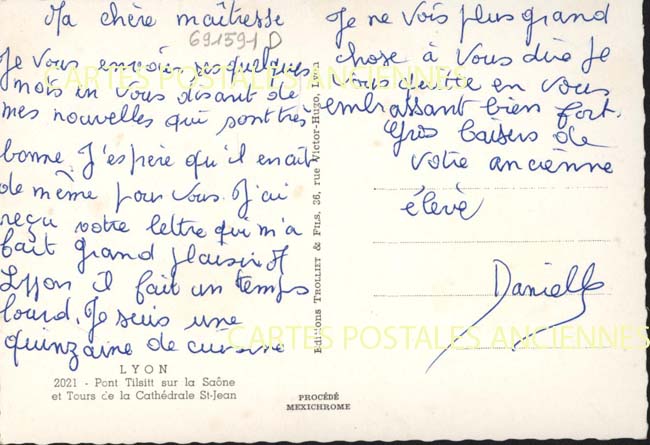 Ma chère maîtresse
691591 D
Je vous envoie ses quelques
mois en vous disant de
mes nouvelles qui sont très
bonne. J'espère qu'il en ait
de même pour vous. J'ai
reçu votre lettre qui m'a
fait grand plaisir. A
Lyon il fait un temps
lourd. Je suis une
quinzaine de cuisine
Je ne vois plus grand
chose à vous dire Je
vous quitte en vous
embrassant bien fort.
Gros baisers de
votre ancienne
élève
Danielle
LYON
2021 - Pont Tilsitt sur la Saône
et Tours de la Cathédrale St-Jean
Editions TROLLIET & FILS, 36, rue Victor-Hugo, Lyon
PROCÉDÉ
MEXICHROME
CARTES POSTALES ANCIENNES
CARTES POSTALES ANCIENNES